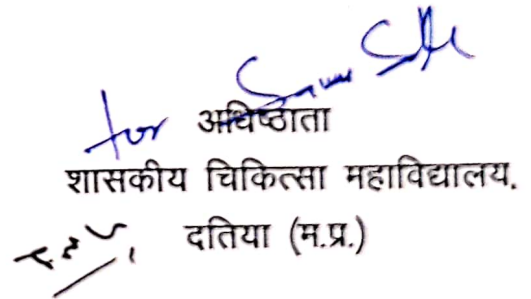 for अधिष्ठाता
शासकीय चिकित्सा महाविद्यालय.
दतिया (म.प्र.)